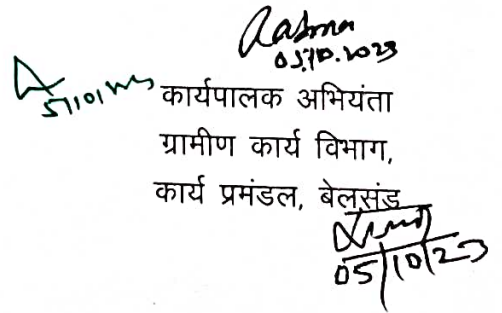 05.10.2023
कार्यपालक अभियंता
ग्रामीण कार्य विभाग,
कार्य प्रमंडल, बेलसंड
05/10/23